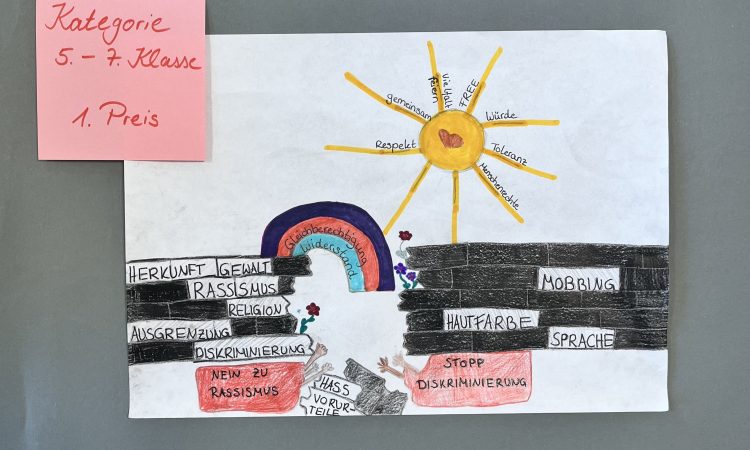 Kategorie
5. - 7. Klasse
1. Preis
gemeinsam
Vielfalt
feiern
FREE
Würde
Respekt
Toleranz
Menschenrechte
Gleichberechtigung
Widerstand
HERKUNFT GEWALT
RASSISMUS
RELIGION
AUSGRENZUNG
DISKRIMINIERUNG
MOBBING
HAUTFARBE
SPRACHE
NEIN ZU
RASSISMUS
HASS
VORUR-
TEILE
STOPP
DISKRIMINIERUNG